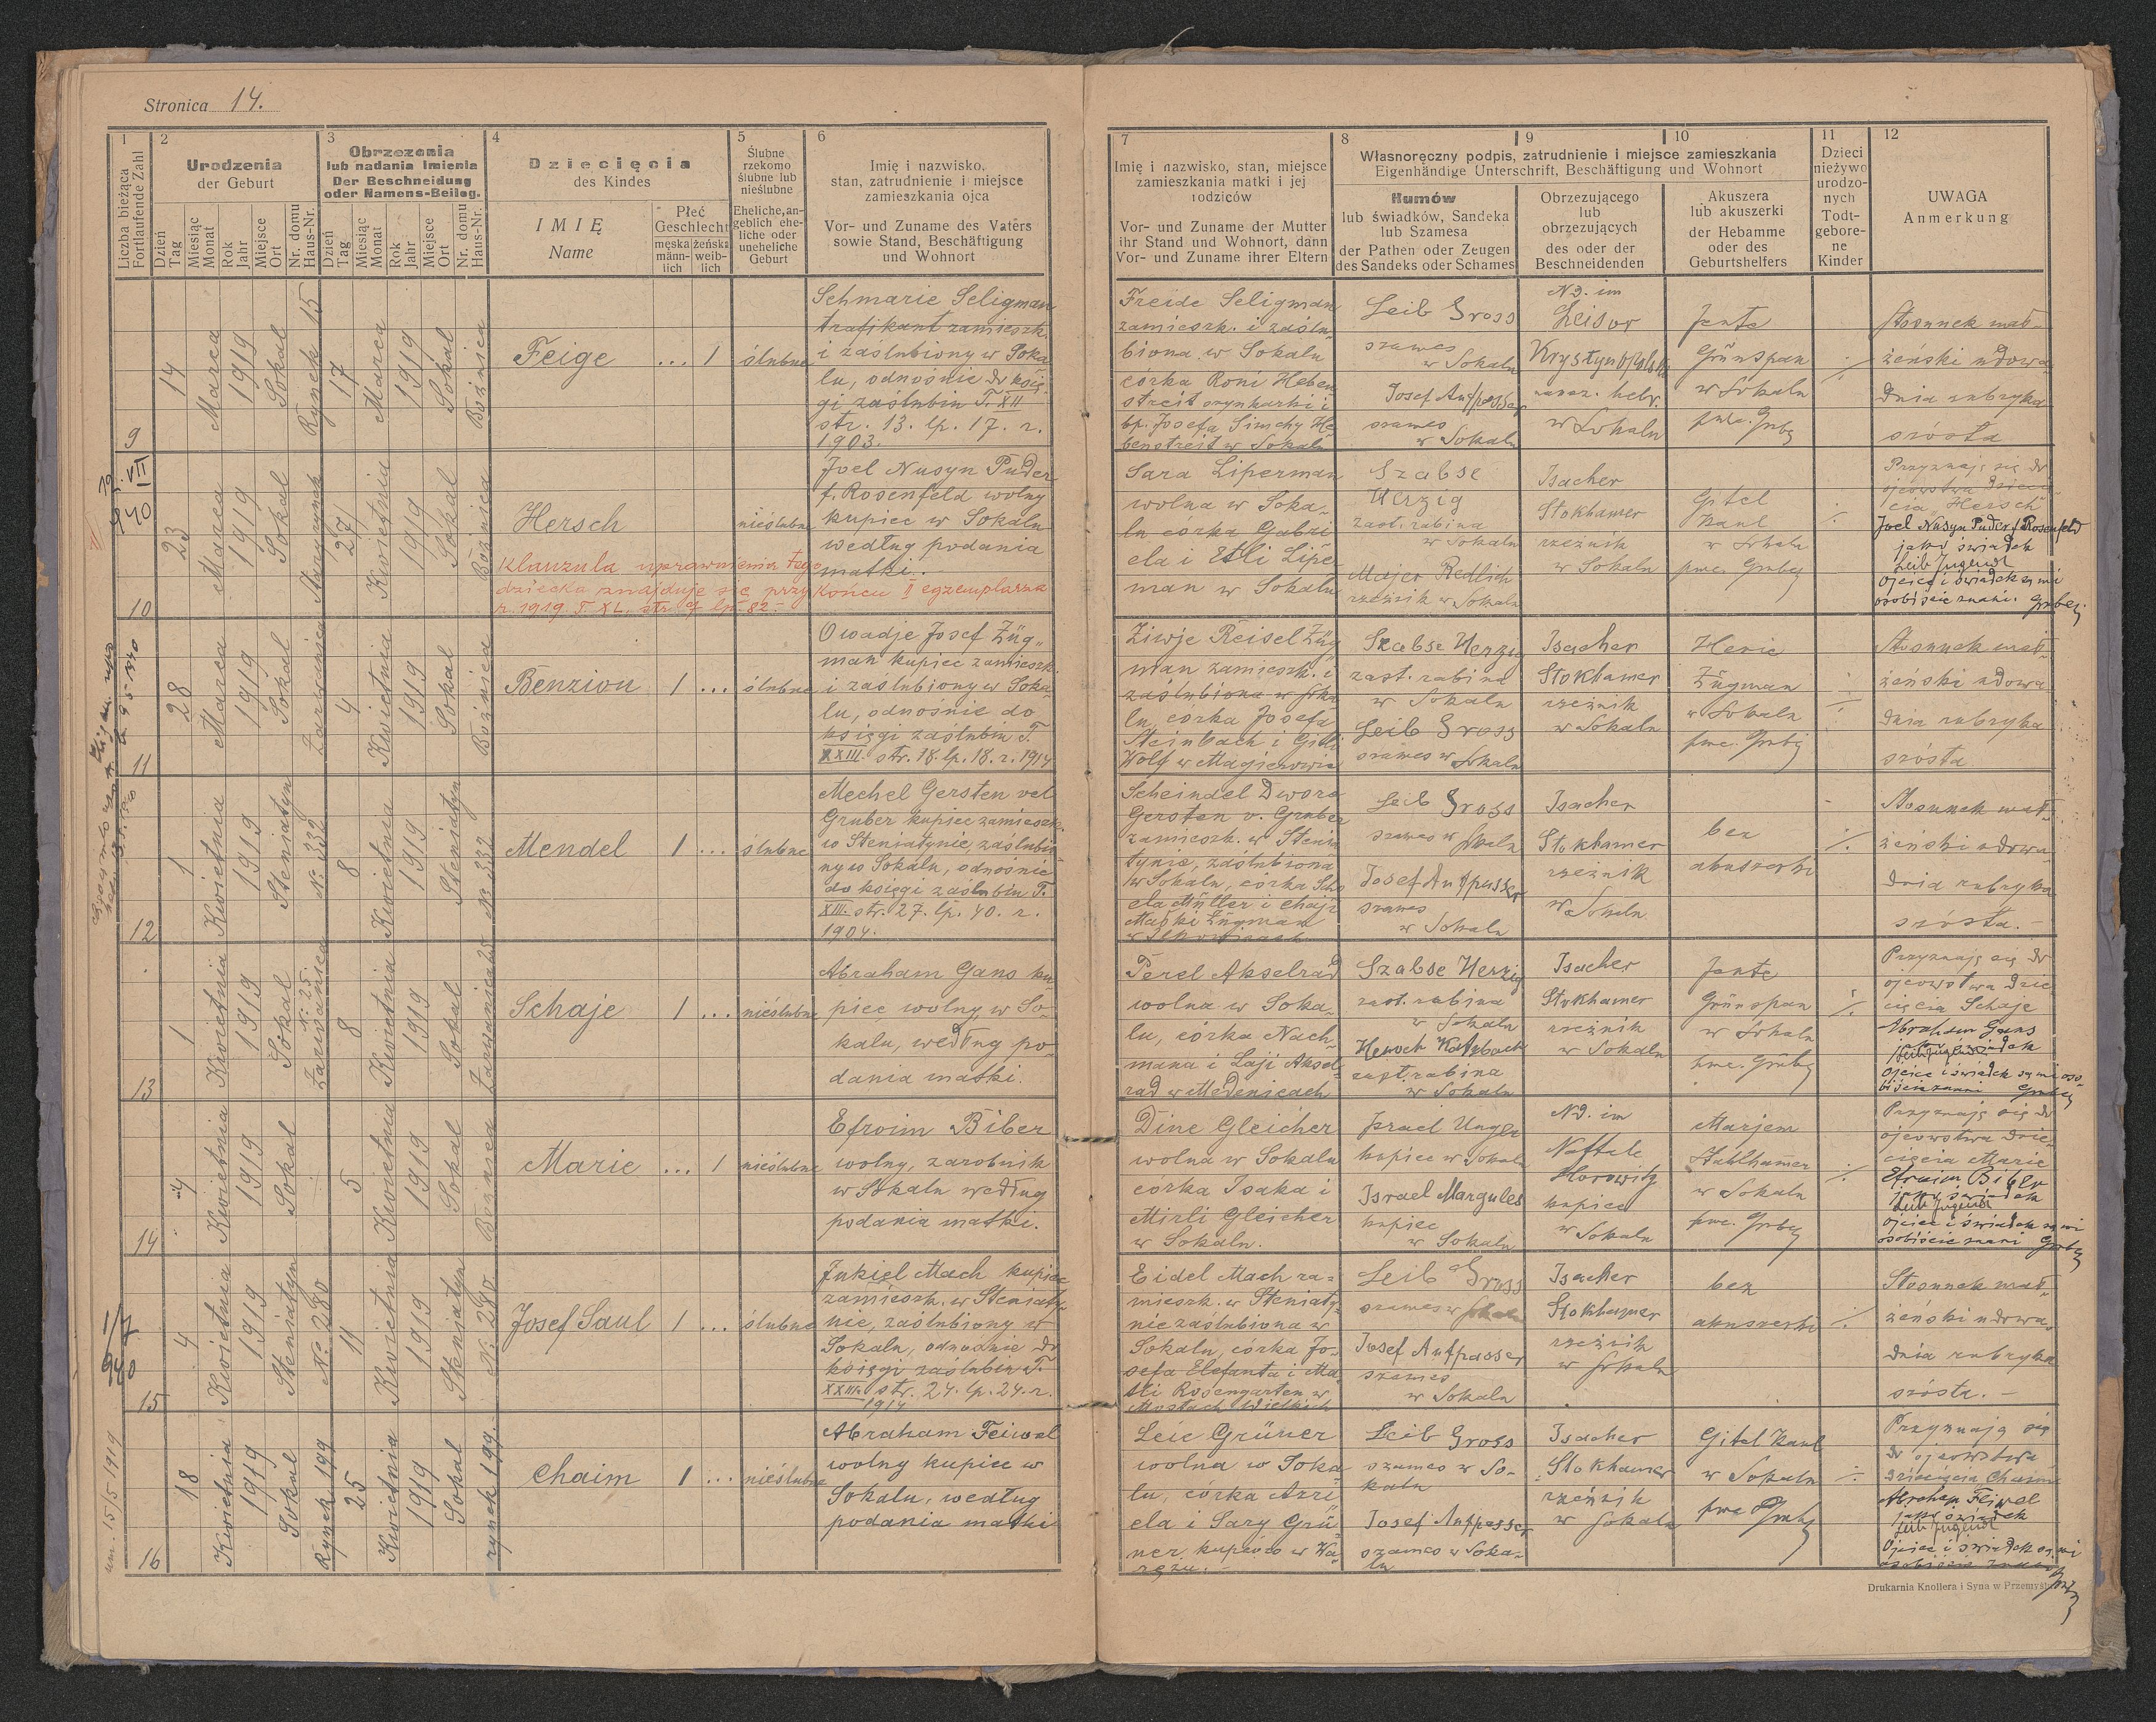 Stronica 14.
1
2
3
4
5
6
Liczba bieżąca
Fortlaufende Zahl
Urodzenia
der Geburt
Obrzezania
lub nadania Imienia
Der Beschneidung
oder Namens-Beileg.
Dziecięcia
des Kindes
Ślubne
rzekomo
ślubne lub
nieślubne
Eheliche, an-
geblich ehe-
liche oder
uneheliche
Geburt
Imię i nazwisko,
stan, zatrudnienie i miejsce
zamieszkania ojca
Vor- und Zuname des Vaters
sowie Stand, Beschäftigung
und Wohnort
Dzień
Tag
Miesiąc
Monat
Rok
Jahr
Miejsce
Ort
Nr. domu
Haus-Nr.
Dzień
Tag
Miesiąc
Monat
Rok
Jahr
Miejsce
Ort
Nr. domu
Haus-Nr.
IMIĘ
Name
Płeć
Geschlecht
męska
männ-
lich
żeńska
weib-
lich
7
8
9
10
11
12
Imię i nazwisko, stan, miejsce
zamieszkania matki i jej
rodziców
Vor- und Zuname der Mutter
ihr Stand und Wohnort, dann
Vor- und Zuname ihrer Eltern
Własnoręczny podpis, zatrudnienie i miejsce zamieszkania
Eigenhändige Unterschrift, Beschäftigung und Wohnort
Kumów
lub świadków, Sandeka
lub Szamesa
der Pathen oder Zeugen
des Sandeks oder Schames
Obrzezującego
lub
obrzezujących
des oder der
Beschneidenden
Akuszera
lub akuszerki
der Hebamme
oder des
Geburtshelfers
Dzieci
nieżywo
urodzo-
nych
Todt-
gebore-
ne
Kinder
UWAGA
Anmerkung
9
14
Marca
1919
Sokal
Rynek 15
17
Marca
1919
Sokal
Bożnica
Feige
... 1
ślubne
Schmarie Seligman
trafikant zamieszk.
i zaślubiony w Soka-
lu, odnośnie do księ-
gi zaślubin T. XII
str. 13. lp. 17. r.
1903.
Freide Seligman
zamieszk. i zaślu-
biona w Sokalu
córka Roni Heben-
streit szynkarki i
bp. Josefa Simchy He-
benstreit w Sokalu
Leib Gross
szames
w Sokalu
Josef Aufpasser
szames
w Sokalu
ND. im
Leisor
w Sokalu
Jente
Grünspan
w Sokalu
Stosunek mał-
żeński udowa-
dnia rubryka
szósta
10
23
Marca
1919
Sokal
27
Kwietnia
1919
Sokal
Bożnica
Hersch
nieślubne
Joel Nusyn Puder
f. Rosenfeld wolny
kupiec w Sokalu
według podania
matki.
Klauzula uprawnienia tego
dziecka znajduje się przy końcu II egzemplarza
r. 1919. T. XL. str. 9 lp. 82.
Sara Liperman
wolna w Soka-
lu córka Gabri-
ela i Etli Lipe-
man w Sokalu
Szabse
Herzig
zast. rabina
w Sokalu
Majer Redlich
rzeźnik w Sokalu
Isacher
Stokhamer
rzeźnik
w Sokalu
Gitel
Kaul
w Sokalu
Przyznaję się do
ojcowstwa dzieci-
cia „Hersch"
Joel Nusyn Puder f. Rosenfeld
jako świadek
Leib Jugend
Ojciec i świadek są mi
osobiście znani.
11
28
Marca
1919
Sokal
Zarwanica
4
Kwietnia
1919
Sokal
Bożnica
Benzion
1 ...
ślubne
Owadje Josef Züg-
man kupiec zamieszk.
i zaślubiony w Soka-
lu, odnośnie do
księgi zaślubin T.
XXIII. str. 18. lp. 18. r. 1914
Ziwje Reisel Züg-
man zamieszk. i
zaślubiona w Soka-
lu, córka Josefa
Steinbach i Gitli
Wolf w Magierowie
Szabse Herzig
zast. rabina
w Sokalu
Leib Gross
szames w Sokalu
Isacher
Stokhamer
rzeźnik
w Sokalu
Henie
Zügman
w Sokalu
Stosunek mał-
żeński udowa-
dnia rubryka
szósta
12
1
Kwietnia
1919
Steniatyn
N: 332
8
Kwietnia
1919
Steniatyn
N: 332
Mendel
1 ...
ślubne
Mechel Gersten vel
Gruber kupiec zamieszk.
w Steniatynie, zaślubio-
ny w Sokalu, odnośnie
do księgi zaślubin T.
XIII. str. 27. lp. 40. r.
1904.
Scheindel Dwore
Gersten v. Gruber
zamieszk. w Stenia-
tynie, zaślubiona
w Sokalu, córka
Müller i Chaji
Zügman
Leib Gross
szames w Sokalu
Josef Aufpasser
szames
w Sokalu
Isacher
Stokhamer
rzeźnik
w Sokalu
bez
akuszerki
Stosunek mał-
żeński udowa-
dnia rubryka
szósta.
13
1
Kwietnia
1919
Sokal
N: 25
Zarwanica
8
Kwietnia
1919
Sokal
Zarwanica 25
Schaje
1 ...
nieślubne
Abraham Gans ku-
piec wolny w So-
kalu, według po-
dania matki.
Perel Akselrad
wolna w Soka-
lu, córka Nach-
mana i Laji Aksel-
rad w Medenicach
Szabse Herzig
zast. rabina
w Sokalu
Henoch Katzbach
zast. rabina
w Sokalu
Isacher
Stokhamer
rzeźnik
w Sokalu
Jente
Grünspan
w Sokalu
Przyznaję się do
ojcowstwa dzie-
cięcia Schaje
Abraham Gans
Ojciec i świadek są mi oso-
biście znani
14
4
Kwietnia
1919
Sokal
5
Kwietnia
1919
Sokal
Bożnica
Marie
... 1
nieślubne
Efroim Biber
wolny, zarobnik
w Sokalu według
podania matki.
Dine Gleicher
wolna w Sokalu
córka Isaka i
Mirli Gleicher
w Sokalu.
Israel Unger
kupiec w Sokalu
Israel Margules
kupiec
w Sokalu
ND. im
Naftale
Horowitz
kupiec
w Sokalu
Marjem
Stahlhamer
w Sokalu
Przyznaję się do
ojcowstwa dzie-
cięcia Marie
Efroim Biber
jako świadek
Leib Jugend
Ojciec i świadek są mi
osobiście znani
1/7
940
15
4
Kwietnia
1919
Steniatyn
No 280
11
Kwietnia
1919
Steniatyn
N: 280
Josef Saul
1 ...
ślubne
Jukiel Mach kupiec
zamieszk. w Steniaty-
nie, zaślubiony w
Sokalu, odnośnie do
księgi zaślubin T.
XXIII. str. 24. lp. 24. r.
1914
Eidel Mach za-
mieszk. w Steniaty-
nie zaślubiona w
Sokalu, córka Jo-
sefa Elefanta i Ma-
Rosengarten w
Mostach Wielkich
Leib Gross
szames w Sokalu
Josef Aufpasser
szames
w Sokalu
Isacher
Stokhamer
rzeźnik
w Sokalu
bez
akuszerki
Stosunek mał-
żeński udowa-
dnia rubryka
szósta. –
um. 15/5 1919
16
18
Kwietnia
1919
Sokal
Rynek 199
25
Kwietnia
1919
Sokal
rynek 199.
Chaim
1 ...
nieślubne
Abraham Feiwel
wolny kupiec w
Sokalu, według
podania matki
Leie Grüner
wolna w Soka-
lu, córka Azri-
ela i Sary Grü-
ner kupców w Wa-
rężu. –
Leib Gross
szames w So-
kalu
Josef Aufpasser
szames w Soka-
lu
Isacher
Stokhamer
rzeźnik
w Sokalu
Gitel Kaul
w Sokalu
Przyznaję się
do ojcowstwa
dziecięcia Chaima
Abraham Feiwel
jako świadek
Leib Jugend
Ojciec i świadek są mi
osobiście znani
Drukarnia Knollera i Syna w Przemyślu